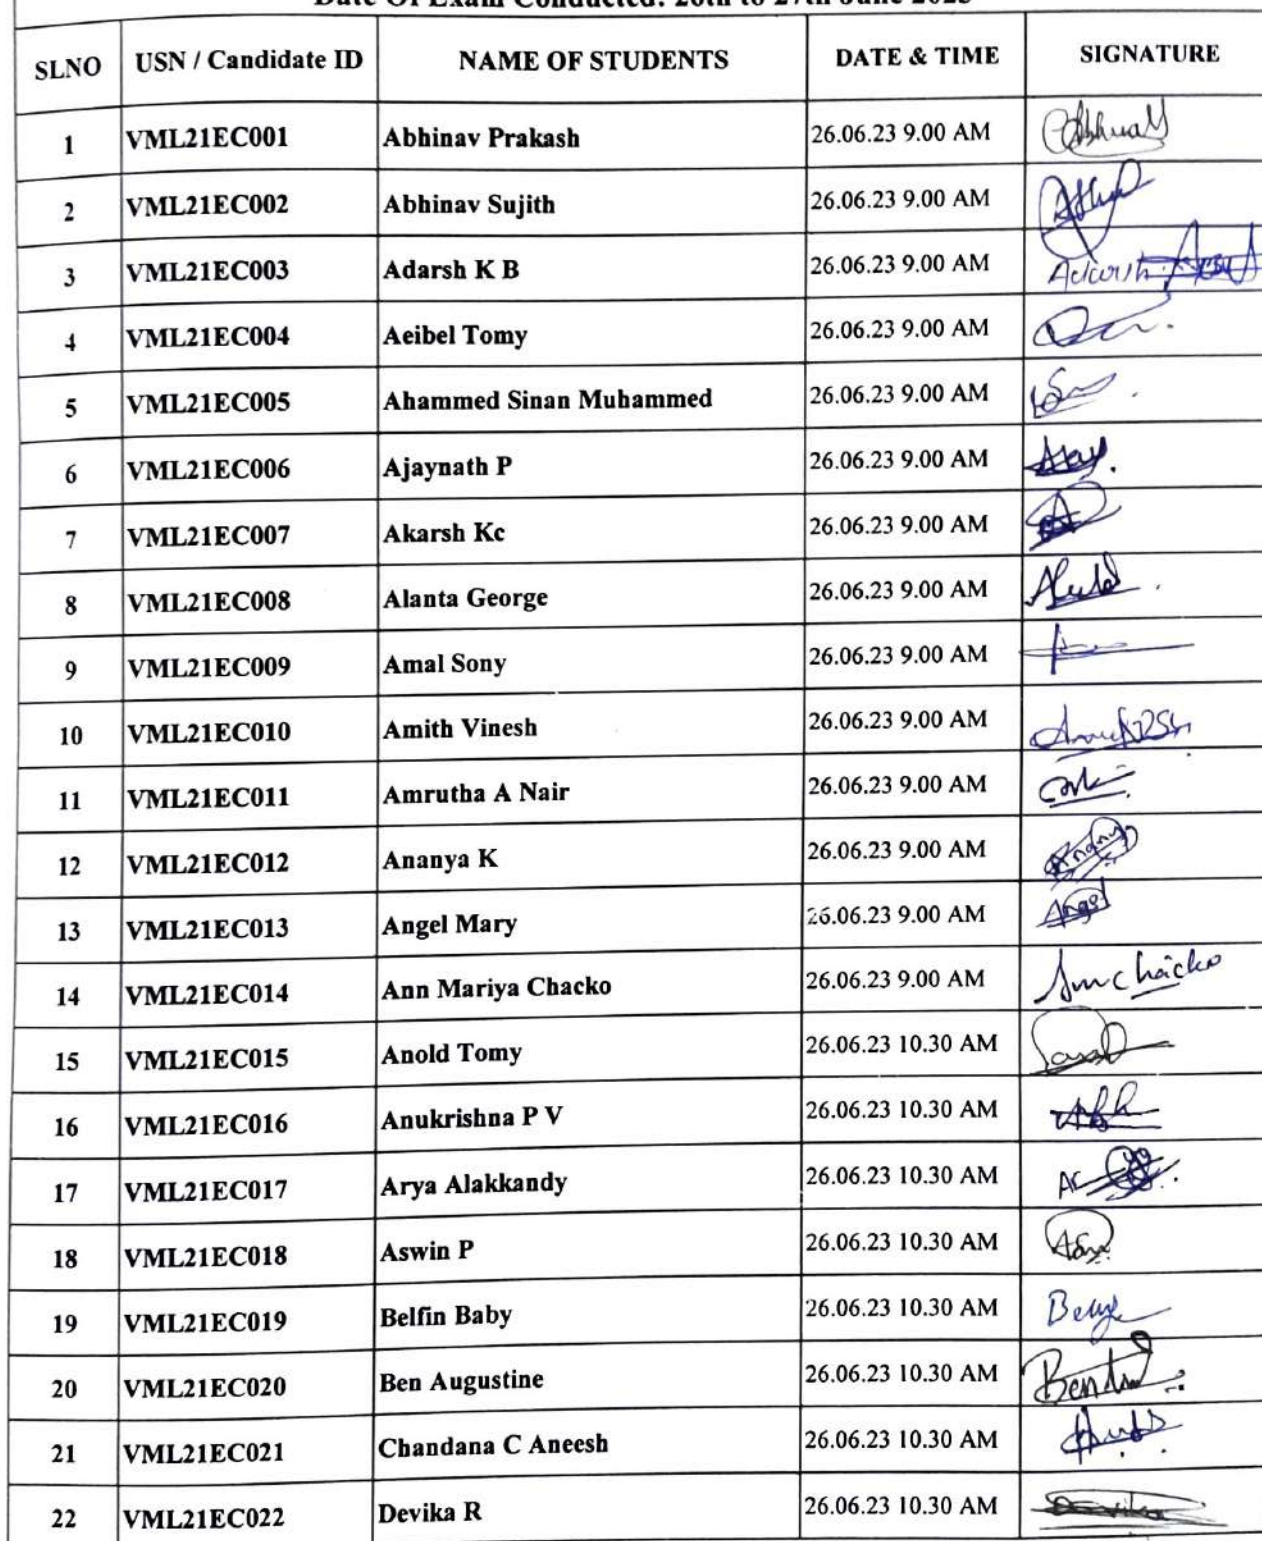 Date Of Exam Conducted: 26th to 27th June 2023
SLNO USN / Candidate ID NAME OF STUDENTS DATE & TIME SIGNATURE
1 VML21EC001 Abhinav Prakash 26.06.23 9.00 AM
2 VML21EC002 Abhinav Sujith 26.06.23 9.00 AM
3 VML21EC003 Adarsh K B 26.06.23 9.00 AM Adarsh
4 VML21EC004 Aeibel Tomy 26.06.23 9.00 AM
5 VML21EC005 Ahammed Sinan Muhammed 26.06.23 9.00 AM
6 VML21EC006 Ajaynath P 26.06.23 9.00 AM
7 VML21EC007 Akarsh Kc 26.06.23 9.00 AM
8 VML21EC008 Alanta George 26.06.23 9.00 AM
9 VML21EC009 Amal Sony 26.06.23 9.00 AM
10 VML21EC010 Amith Vinesh 26.06.23 9.00 AM
11 VML21EC011 Amrutha A Nair 26.06.23 9.00 AM
12 VML21EC012 Ananya K 26.06.23 9.00 AM Ananya
13 VML21EC013 Angel Mary 26.06.23 9.00 AM Angel
14 VML21EC014 Ann Mariya Chacko 26.06.23 9.00 AM
15 VML21EC015 Anold Tomy 26.06.23 10.30 AM
16 VML21EC016 Anukrishna P V 26.06.23 10.30 AM
17 VML21EC017 Arya Alakkandy 26.06.23 10.30 AM
18 VML21EC018 Aswin P 26.06.23 10.30 AM
19 VML21EC019 Belfin Baby 26.06.23 10.30 AM
20 VML21EC020 Ben Augustine 26.06.23 10.30 AM
21 VML21EC021 Chandana C Aneesh 26.06.23 10.30 AM
22 VML21EC022 Devika R 26.06.23 10.30 AM Devika